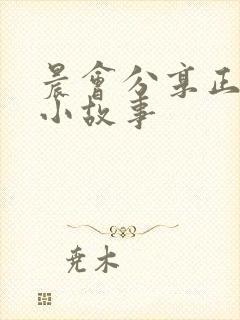 晨會分享正
小故事
堯木